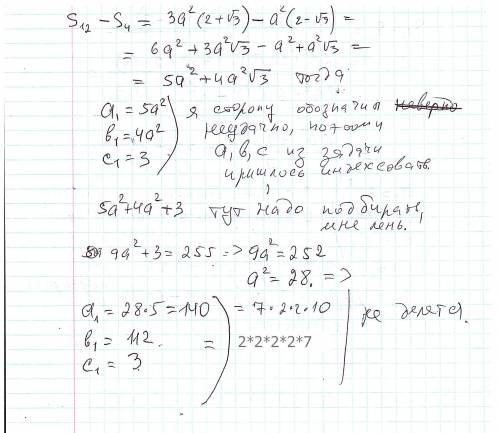 S₁₂ - S₄ = 3a²(2+√3) - a²(2-√3) =
= 6a² + 3a²√3 - a² + a²√3 =
= 5a² + 4a²√3 тогда
a₁ = 5a²
b₁ = 4a²
c₁ = 3
я сторону обозначил неверно
неудачно, потому
a, b, c из задачи
пришлось индексовать.
5a²+4a²+3 тут надо подбирать,
мне лень.
9a²+3 = 255 => 9a² = 252
a² = 28. =>
a₁ = 28·5 = 140 = 7·2·2·10
b₁ = 112. = 2*2*2*2*7
c₁ = 3
не делятся.